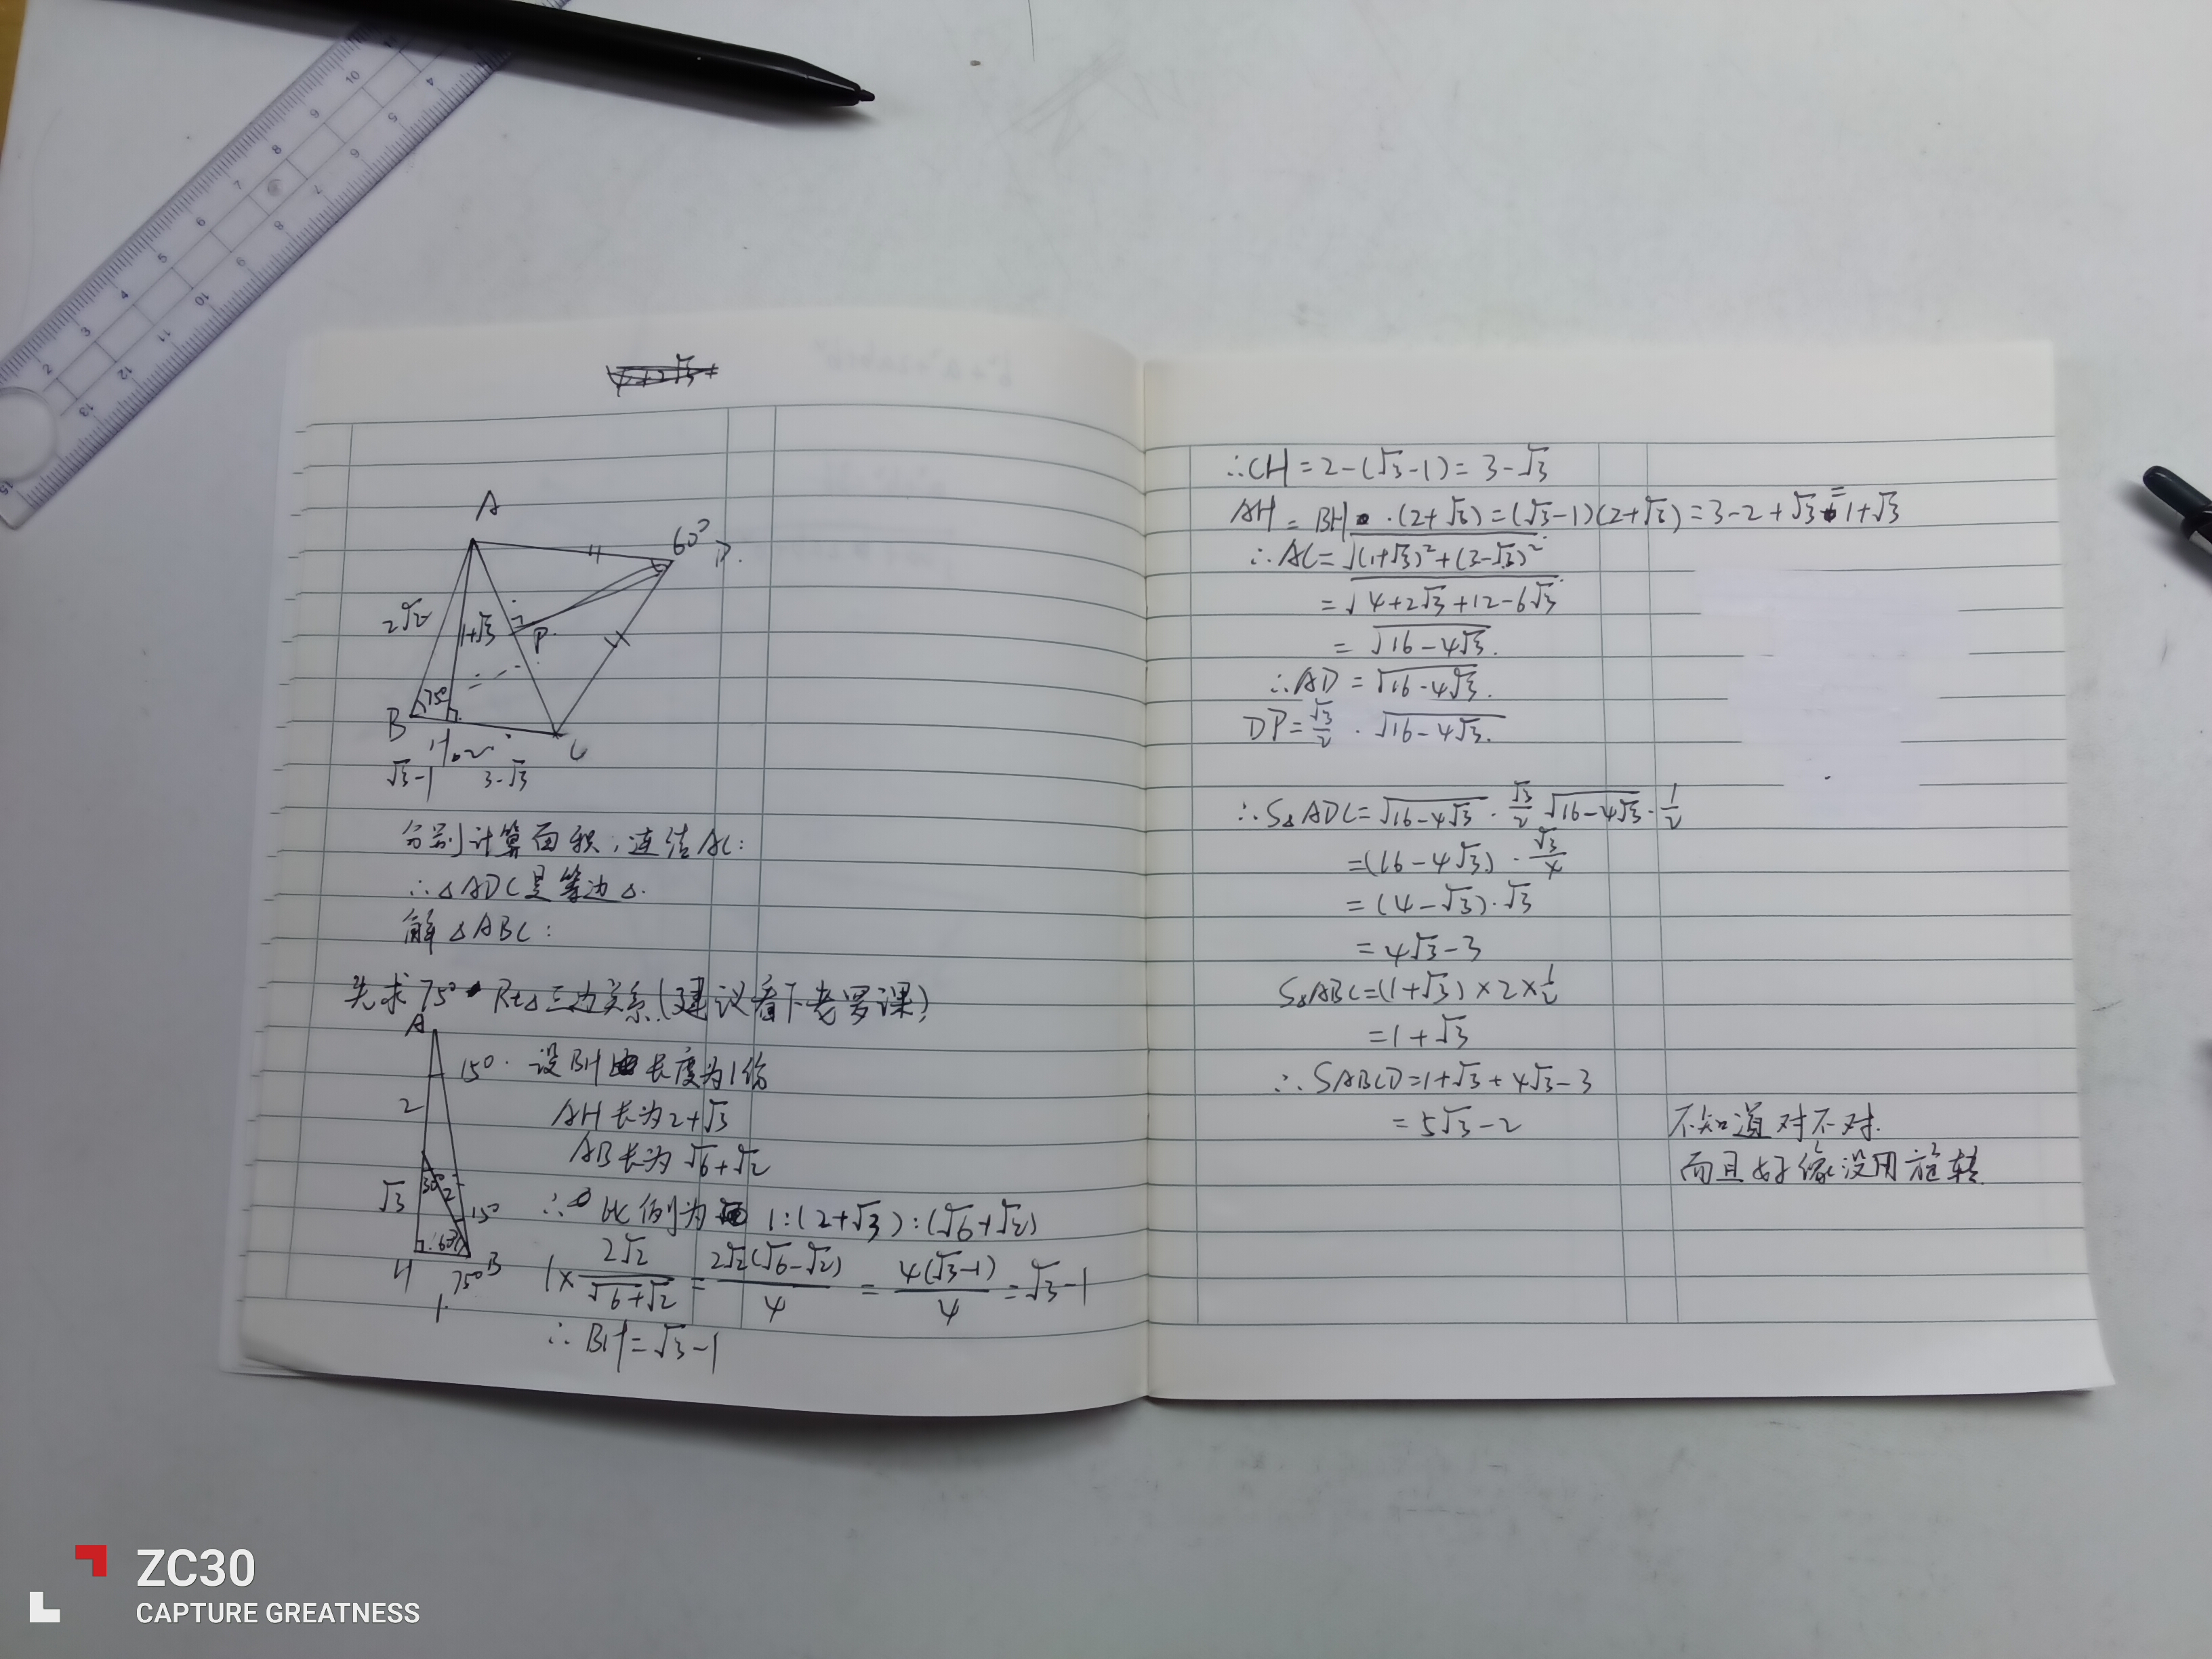 A
60°
D
2√2
1+√3
P
75°
B
H
2
C
√3-1
3-√3
分别计算面积,连结AC:
∴△ADC是等边△.
解△ABC:
先求75°Rt△三边关系(建议看下老罗课)
A
15°
设BH长度为1份
2
AH长为2+√3
AB长为√6+√2
√3
30°
2
15°
∴比例为 1:(2+√3):(√6+√2)
60°
H
75°
B
1
1×2√2/(√6+√2)=2√2(√6-√2)/4=4(√3-1)/4=√3-1
∴BH=√3-1
∴CH=2-(√3-1)=3-√3
AH=BH·(2+√3)=(√3-1)(2+√3)=3-2+√3=1+√3
∴AC=√((1+√3)²+(3-√3)²)
=√(4+2√3+12-6√3)
=√(16-4√3).
∴AD=√(16-4√3).
DP=√3/2·√(16-4√3).
∴S△ADC=√(16-4√3)·√3/2√(16-4√3)·1/2
=(16-4√3)·√3/4
=(4-√3)·√3
=4√3-3
S△ABC=(1+√3)×2×1/2
=1+√3
∴SABCD=1+√3+4√3-3
=5√3-2
不知道对不对.
而且好像没用旋转
ZC30
CAPTURE GREATNESS